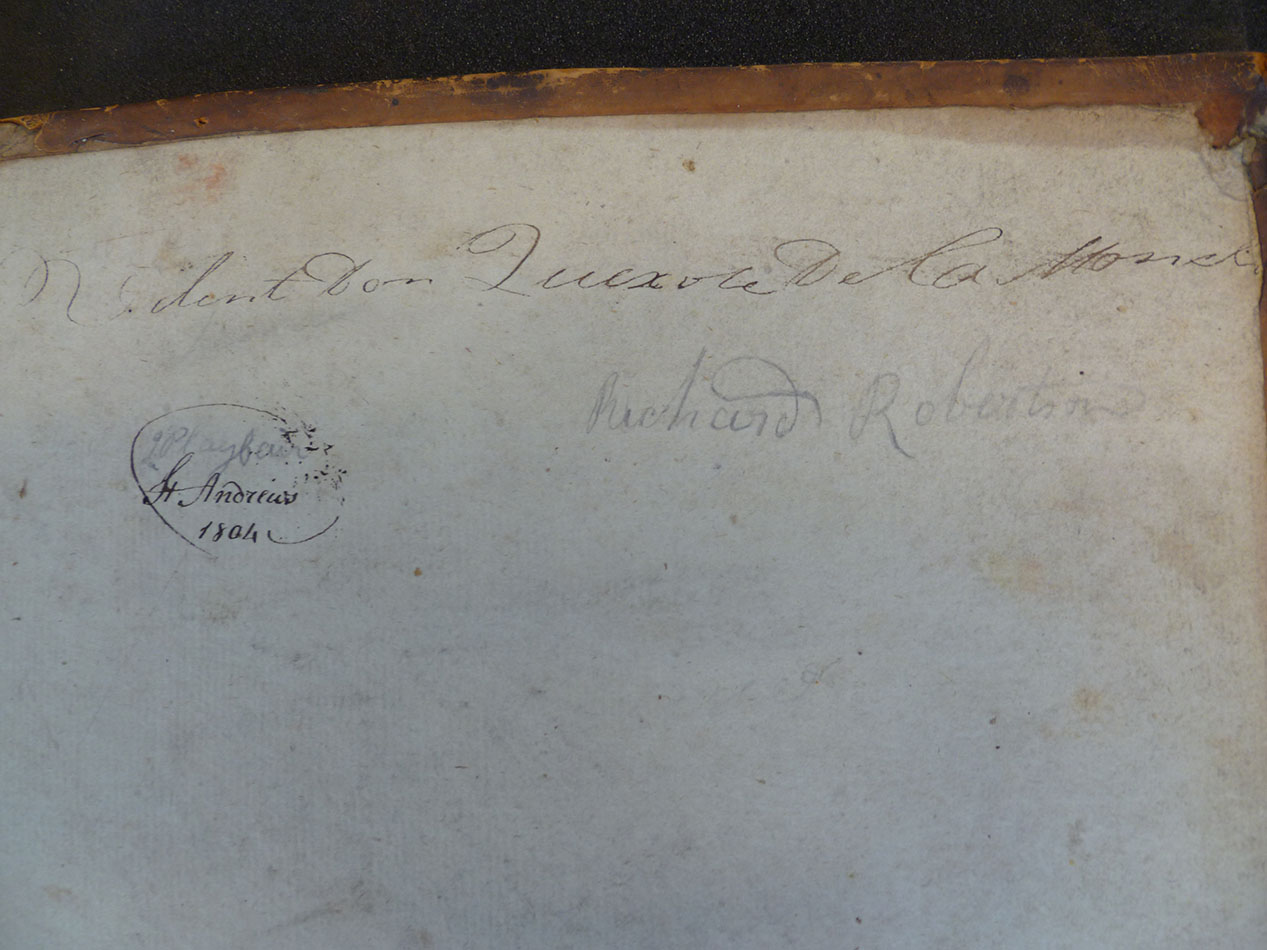 Don Quixote De La Manc
Richard Robertson
Playfair
St Andrews
1804